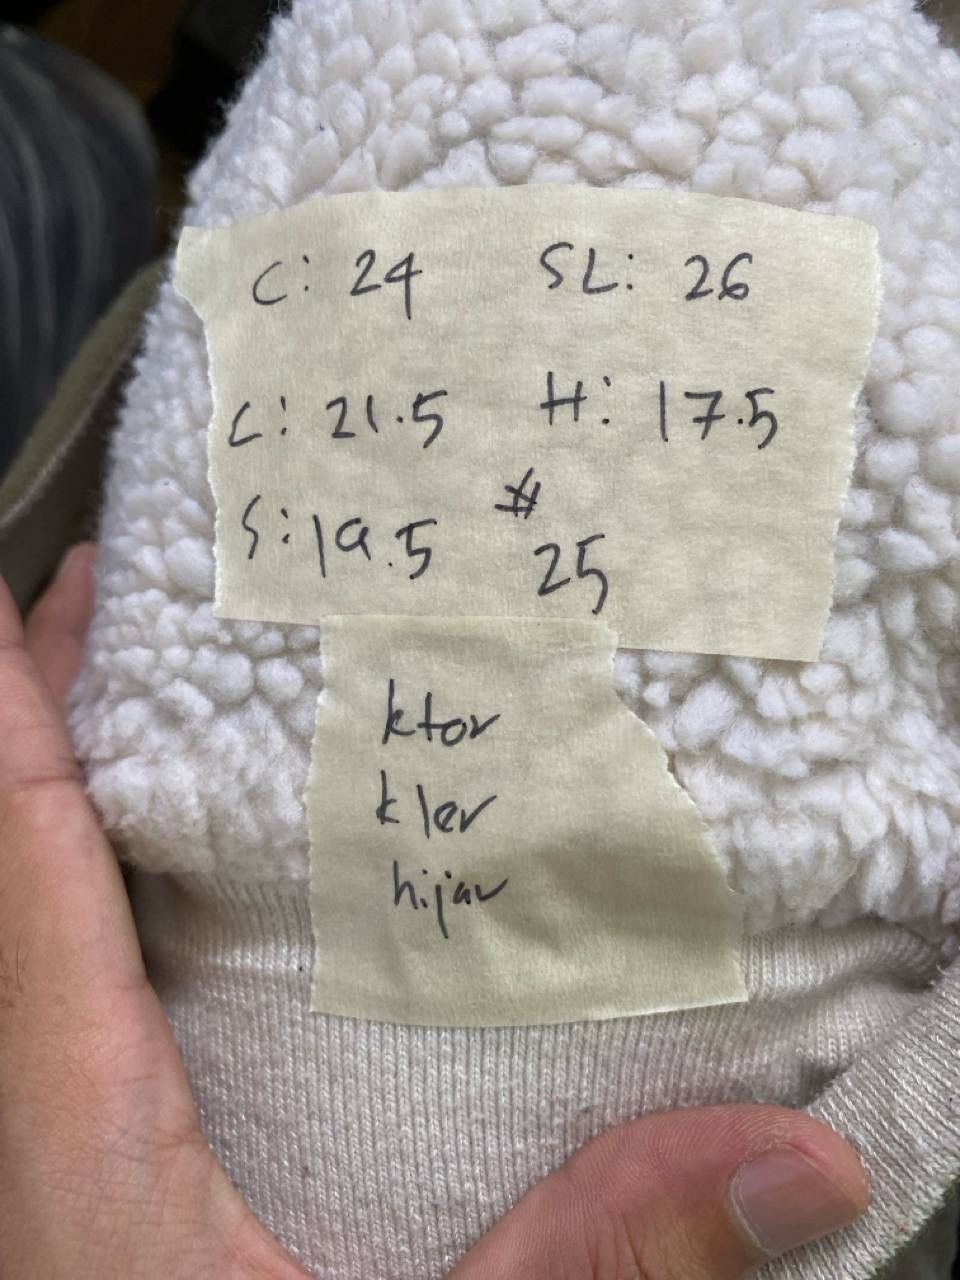 C: 24 SL: 26
L: 21.5 H: 17.5
S: 19.5 #
25
ktor
kler
hijau